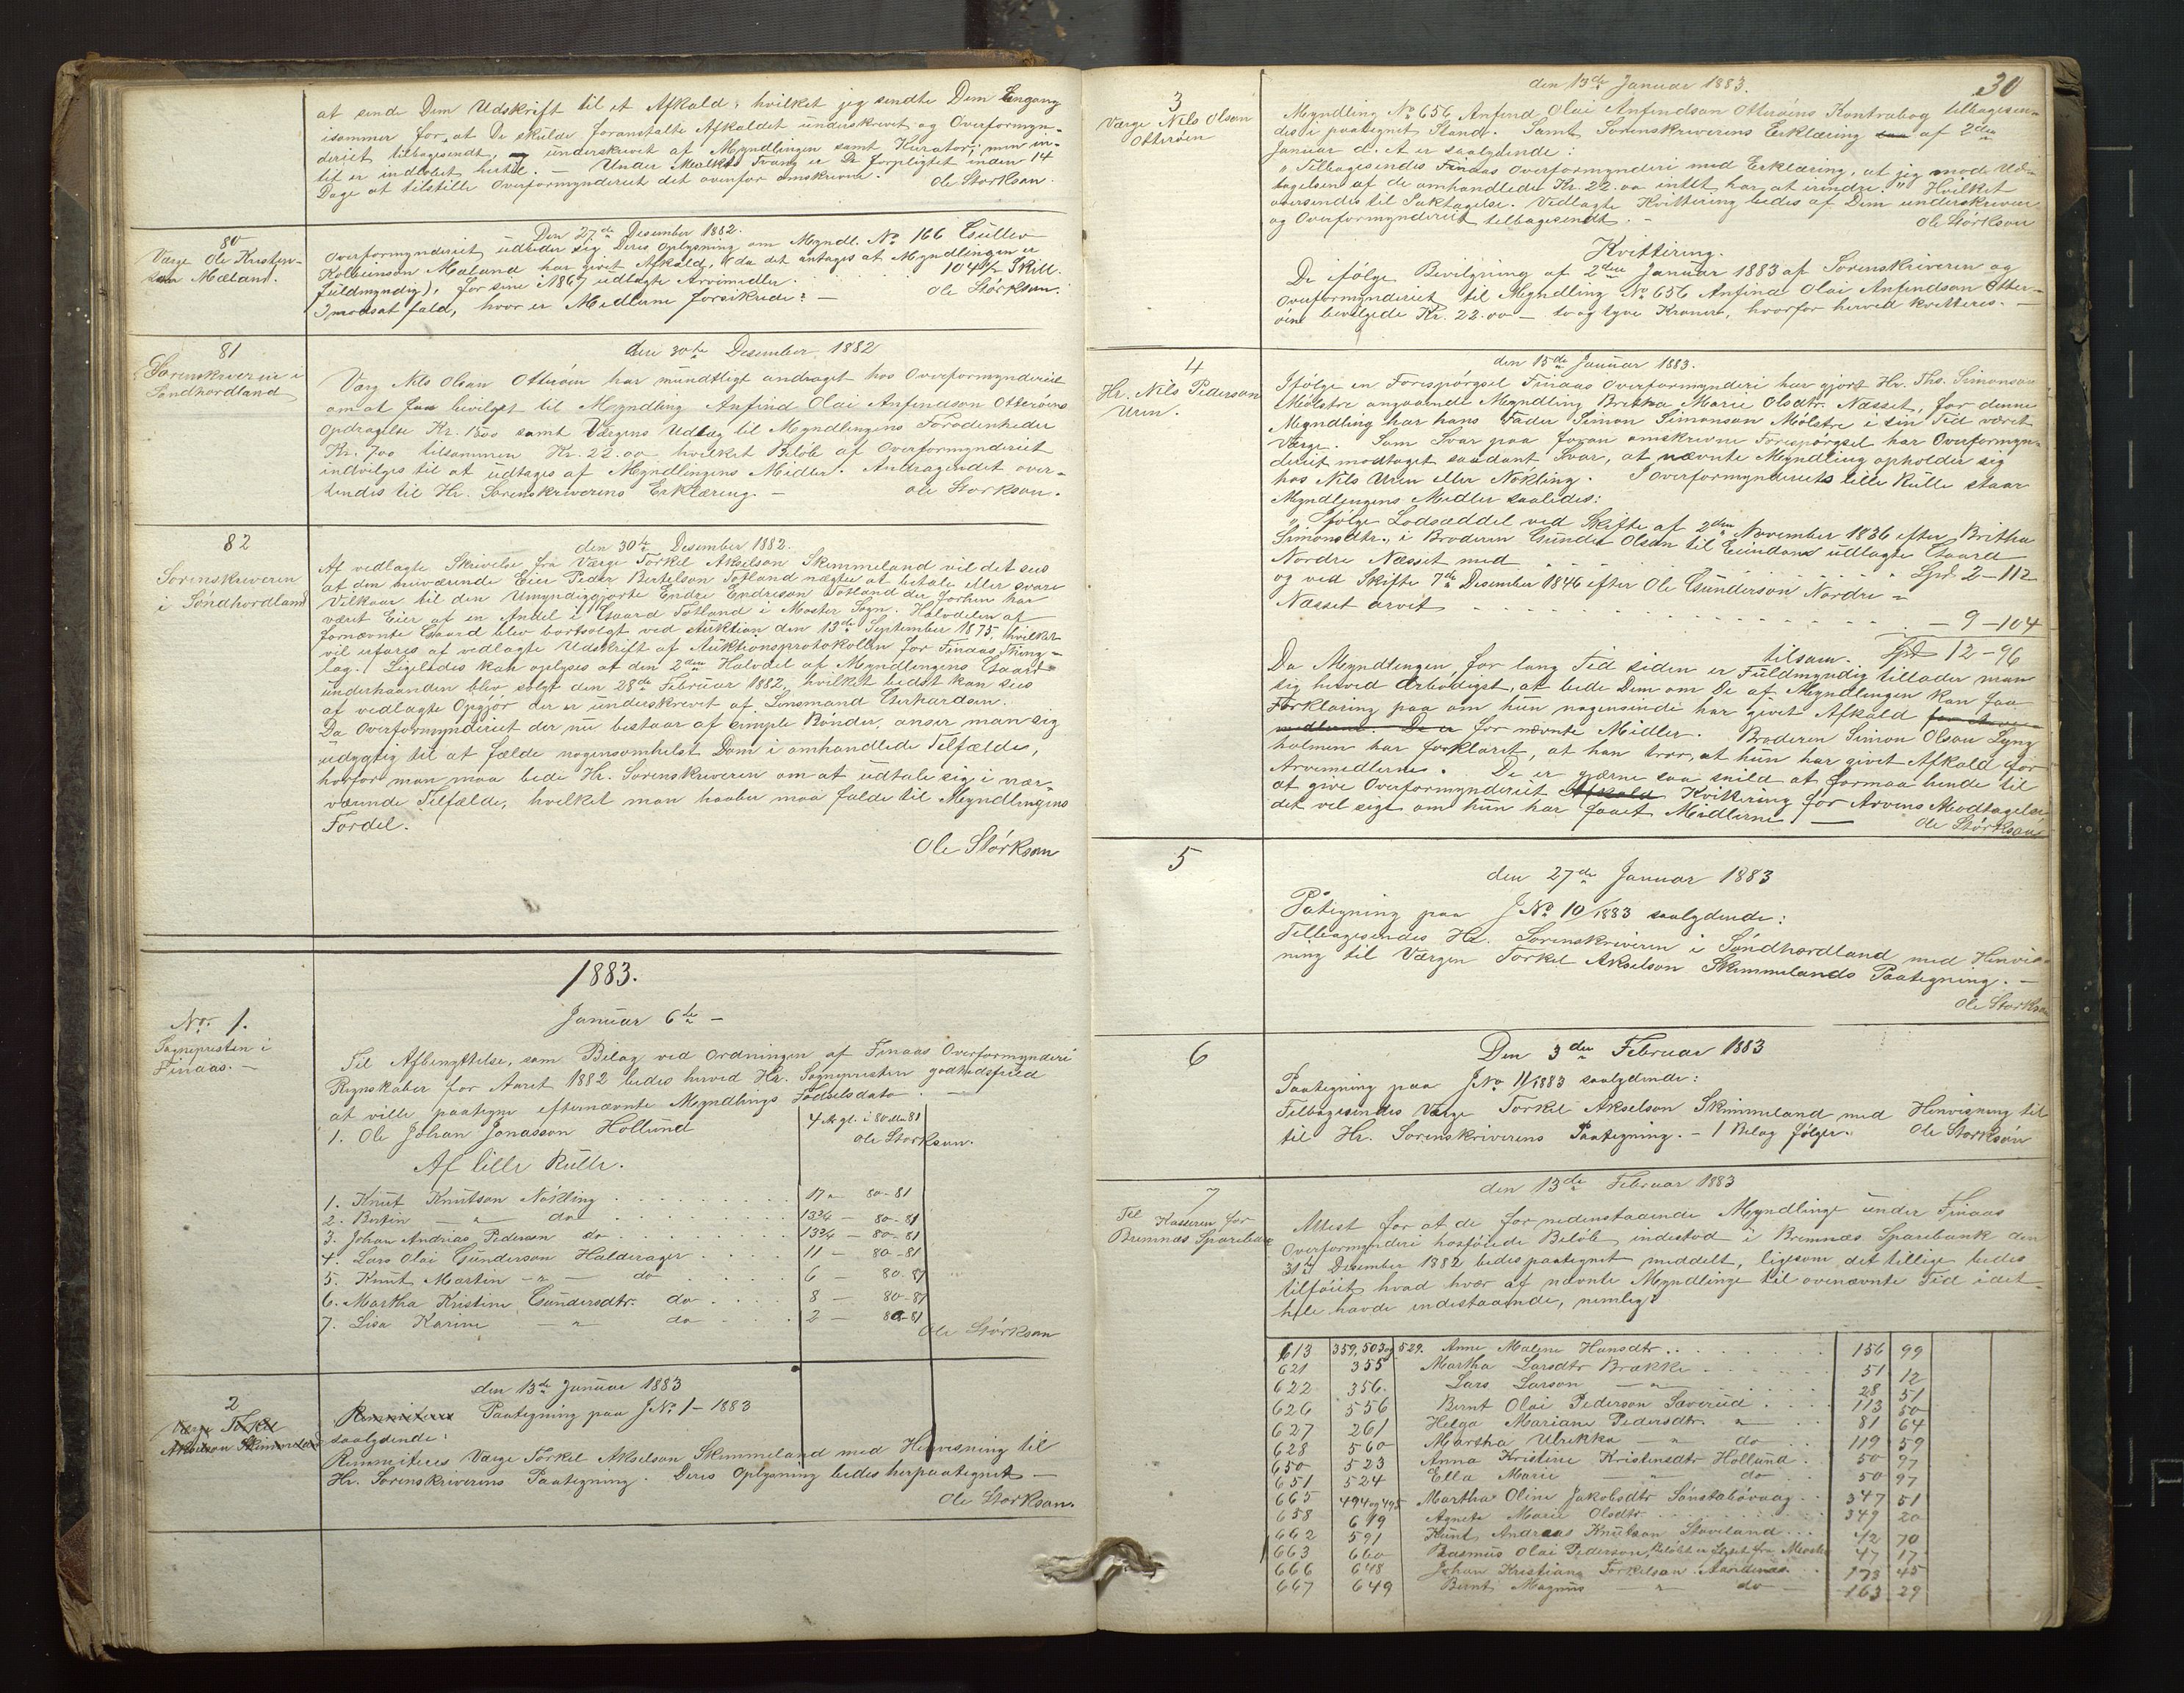 at sende Dem Udskrift til et Afkald; hvilket jeg sendte Dem Engang
isommer for, at De skulde foranstalte Afkaldet underskrevet og Overformyn-
deriet tilbagesendt, underskrevet af Myndlingen samt Kurator; men in-
tet er indløbet hertil. — Under Mulkts Tvang er De forpligtet inden 14
Dage at tilstille Overformynderiet det ovenfor omskrevne.
Ole Størkson.
80
Værge Ole Kristen-
son Mæland.
Den 27de Desember 1882.
Overformynderiet udbeder sig Deres Oplysning om Myndl. No 166 Gullev
Kolbeinson Mæland har givet Afkald, (da det antages at Myndlingen er
fuldmyndig), for sine i 1867 udlagte Arvemidler. 104 1/2 Skill.
I modsat fald, hvor er Midlerne forsikrede? —
Ole Størkson.
81
Sorenskriveren i
Søndhordland
den 30te Desember 1882
Værg Nils Olson Otterøen har mundtligt andraget hos Overformynderiet
om at faa bevilget til Myndling Anfind Olai Anfindson Otterøens
Opdragelse Kr. 15 00 samt Værgens Udlæg til Myndlingens Fornødenheder
Kr. 7 00 tilsammen Kr. 22.00, hvilket Beløb af Overformynderiet
indvilges til at udtages af Myndlingens Midler. Andragendet over-
sendes til Hr. Sorenskriverens Erklæring. —
Ole Størkson.
82
Sorenskriveren
i Søndhordland
den 30te Desember 1882.
Af vedlagte Skrivelse fra Værge Torkel Akselson Skimmeland vil det sees
at den nuværende Eier Peder Bertelson Totland nægter at betale eller svare
Vilkaar til den Umyndiggjorte Endre Endreson Totland der forhen har
været Eier af en Andel i Gaard Totland i Moster Sogn. Halvdelen af
fornævnte Gaard blev bortsolgt ved Auktion den 13de September 1875, hvilket
vil erfares af vedlagte Udskrift af Auktionsprotokollen for Finaas Thing-
lag. Ligeledes kan oplyses at den 2den Halvdel af Myndlingens Gaard
underhaanden blev solgt den 28de Februar 1882, hvilket bedst kan sees
af vedlagte Opgjør der er underskrevet af Lensmand Gerhardsen.
Da Overformynderiet der nu bestaar af simple Bønder, anser man sig
udygtig til at fælde nogensomhelst Dom i omhandlede Tilfælde,
hvorfor man maa bede Hr. Sorenskriveren om at udtale sig i nær-
værende Tilfælde, hvilket man haaber maa falde til Myndlingens
Fordel.
Ole Størkson
1883.
No. 1.
Sognepresten i
Finaas. —
Januar 6te —
Til Afbenyttelse, som Bilag ved Ordningen af Finaas Overformynderi
Regnskaber for Aaret 1882 bedes herved Hr. Sognepresten godhedsfuld
at ville paategne efternævnte Myndlings Fødselsdato. —
1. Ole Johan Jonasson Hollund 4 Ar gl. i 80 81
Ole Størkson.
Af lille Rulle.
1. Knut Knutson Nøkling 17 " 80-81
2. Bertin — " — do 13 3/4 — 80-81
3. Johan Andreas Pederson do 13 3/4 — 80-81
4. Lars Olai Gunderson Halderager 11 — 80-81
5. Knut Martin — " — do 6 — 80-81
6. Martha Kristine Gundersdtr. do 8 — 80-81
7. Lisa Karine — " — do 2 — 80-81
Ole Størkson
2
Værge Torkel
Akselson Skimmeland
den 13de Januar 1883
Remmiteres Paategning paa J.No. 1 - 1883
saalydende:
Remmiteres Værge Torkel Akselson Skimmeland med Henvisning til
Hr. Sorenskriverens Paategning. Deres Oplysning bedes herpaategnet —
Ole Størkson.
30
3
Værge Nils Olson
Otterøen
den 13de Januar 1883.
Myndling No 656 Anfind Olai Anfindson Otterøens Kontrabog tilbagesen-
des i paategnet Stand. Samt Sorenskriverens Erklæring af 2den
Januar d. A er saalydende:
" Tilbagesendes Finaas Overformynderi med Erklæring, at jeg mod Ud-
tagelsen af de omhandlede Kr. 22.00 intet har at erindre. " Hvilket
oversendes til Iaktagelse. Vedlagte Kvittering bedes af Dem underskreven
og Overformynderiet tilbagesendt. —
Ole Størkson
Kvittering.
De ifølge Bevilgning af 2den Januar 1883 af Sorenskriveren og
Overformynderiet til Myndling No 656 Anfind Olai Anfindson Otter-
øens bevilgede Kr. 22.00 — to og tyve Kroner, hvorfor herved kvitteres. —
4
Hr. Nils Pederson
Uren.
den 15de Januar 1883.
Ifølge en Forespørgsel Finaas Overformynderi har gjort Hr. Ths. Simonson
Mølstre angaaende Myndling Britha Marie Olsdtr. Næsset, for denne
Myndling har hans Fader Simon Simonson Mølstre i sin Tid været
Værge. Som Svar paa foran omskrevne Forespørgsel har Overformyn-
deriet modtaget saadant Svar, at nævnte Myndling opholder sig
hos Nils Uren eller Nøkling. I Overformynderiets lille Rulle staar
Myndlingens Midler saaledes:
" Ifølge Lodsæddel ved Skifte af 2den November 1836 efter Britha
Simonsdtr., i Broderen Gunder Olson til Eiendom udlagte Gaard
Nordre Næsset med Spd. 2 - 112
og ved Skifte 7de Desember 1846 efter Ole Gunderson Nordre -
Næsset arvet — 9 - 104
tilsam. Spd 12 - 96
Da Myndlingen for lang Tid siden er Fuldmyndig tillader man
sig herved ærbødigst, at bede Dem om De af Myndlingen kan faa
Forklaring paa om hun nogensinde har givet Afkald for Arve-
midlerne. De er for nævnte Midler. Broderen Simon Olson Lyng
holmen har forklaret, at han tror, at hun har givet Afkald for
Arvemidlerne. De er gjerne saa snild at formaa hende til
at give Overformynderiet Afkald Kvitering for Arvens Modtagelse
det vil sige om hun har faaet Midlerne. —
Ole Størkson
5
den 27de Januar 1883
Påtegning paa J No 10/1883 saalydende:
Tilbagesendes Hr. Sorenskriveren i Søndhordland med Henvis-
ning til Værgen Torkel Akselson Skimmelands Paategning. —
Ole Størkson
6
Den 3den Februar 1883
Paategning paa J No 11/1883 saalydende:
Tilbagesendes Værge Torkel Akselson Skimmeland med Henvisning til
til Hr. Sorenskriverens Paategning. — 1 Bilag følger.
Ole Størksøn
7
Til Kasseren for
Bremnæs Sparebank
den 13de Februar 1883
Attest for at de for nedenstaaende Myndlinge under Finaas
Overformynderi hosføiede Beløb indestod i Bremnæs Sparebank den
31te Desember 1882 bedes paategnet meddelt, ligesom det tillige bedes
tilføiet hvad hver af nævnte Myndlinge til ovennævnte Tid i det
hele havde indestaaende, nemlig:
613 359, 503 og 529. Anne Malene Hansdtr. 156 99
621 355 Martha Larsdtr Brække 51 12
622 356. Lars Larson — " 28 51
626 556 Bernt Olai Pederson Sæverud 113 50
627 261 Helga Mariane Pedersdtr. " 81 64
628 560 Martha Ulrikka — " do 119 59
650 523 Anna Kristine Kristensdtr Hollund 50 97
651 524 Ella Marie " do 50 97
665 494 og 495 Martha Oline Jakobsdtr Sønstabøvaag 347 51
658 619 Agnete Marie Olsdtr. 349 20
662 591 Knut Andreas Knutson Stoveland 42 70
663 660 Rasmus Olai Pederson, Beløbet er flyttet fra Moster 47 17
666 648 Johan Kristian Torkelson 173 45
667 649 Bernt Magnus — " do 163 29